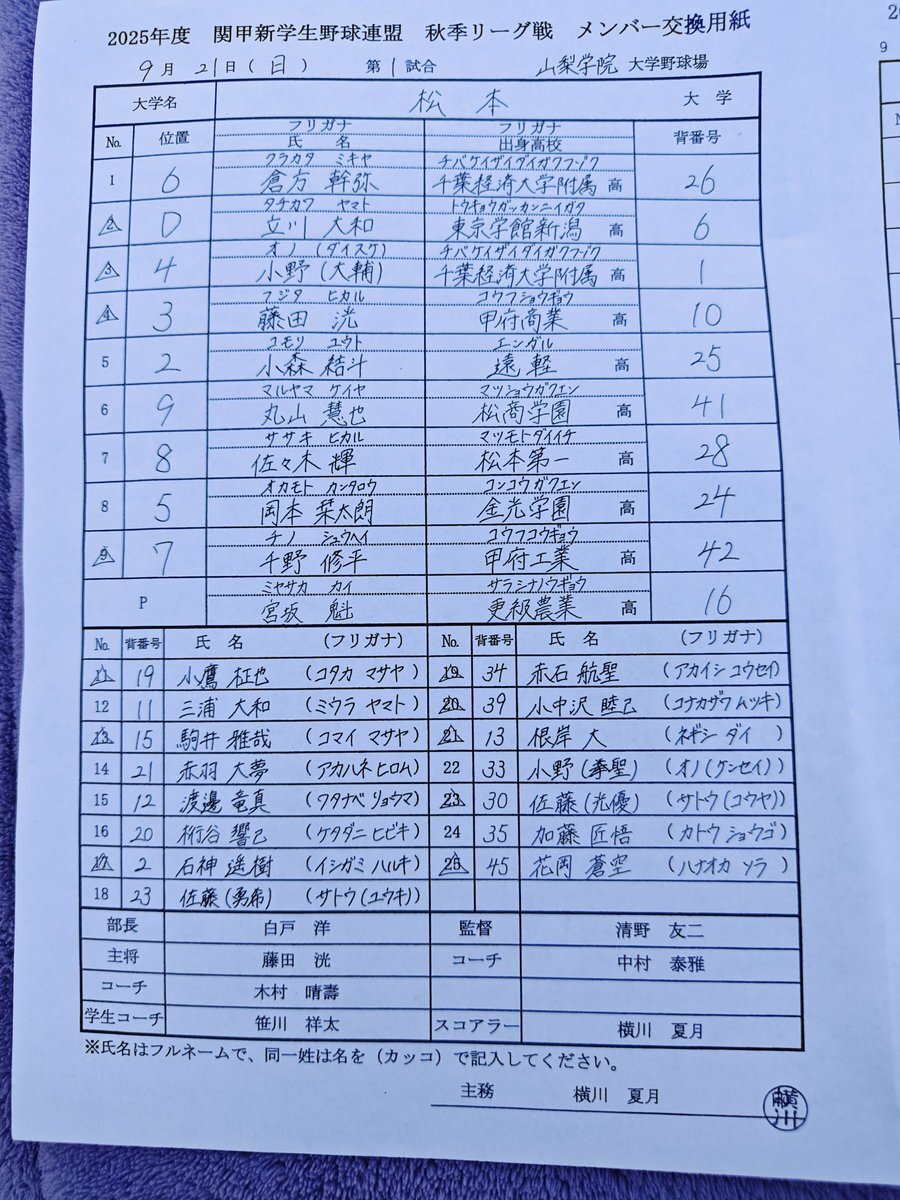 2025年度 関甲新学生野球連盟 秋季リーグ戦 メンバー交換用紙
9月 21日(日) 第1試合 山梨学院 大学野球場
大学名 松本 大学
No. 位置 フリガナ 氏名 フリガナ 出身高校 背番号
クラカタ ミキヤ チバケイザイダイガクフゾク
1 6 倉方 幹弥 千葉経済大学附属 高 26
タチカワ ヤマト トウキョウガッカンニイガタ
2 D 立川 大和 東京学館新潟 高 6
オノ (ダイスケ) チバケイザイダイガクフゾク
3 4 小野(大輔) 千葉経済大学附属 高 1
フジタ ヒカル コウフショウギョウ
4 3 藤田 洸 甲府商業 高 10
コモリ ユウト エンガル
5 2 小森 結斗 遠軽 高 25
マルヤマ ケイヤ マツショウガクエン
6 9 丸山 慧也 松商学園 高 41
ササキ ヒカル マツモトダイイチ
7 8 佐々木 輝 松本第一 高 28
オカモト カンタロウ コンコウガクエン
8 5 岡本 栞太朗 金光学園 高 24
チノ シュウヘイ コウフコウギョウ
9 7 千野 修平 甲府工業 高 42
ミヤサカ カイ サラシナノウギョウ
P 宮坂 魁 更級農業 高 16
No. 背番号 氏名 (フリガナ) No. 背番号 氏名 (フリガナ)
11 19 小鷹 柾也 (コタカ マサヤ) 19 34 赤石 航聖 (アカイシ コウセイ)
12 11 三浦 大和 (ミウラ ヤマト) 20 39 小中沢 睦己 (コナカザワ ムツキ)
13 15 駒井 雅哉 (コマイ マサヤ) 21 13 根岸 大 (ネギシ ダイ)
14 21 赤羽 大夢 (アカハネ ヒロム) 22 33 小野(拳聖) (オノ(ケンセイ))
15 12 渡邊 竜真 (ワタナベ リョウマ) 23 30 佐藤(光優) (サトウ(コウヤ))
16 20 桁谷 響己 (ケタダニ ヒビキ) 24 35 加藤 匠悟 (カトウ ショウゴ)
17 2 石神 遥樹 (イシガミ ハルキ) 25 45 花岡 蒼空 (ハナオカ ソラ)
18 23 佐藤(勇希) (サトウ(ユウキ))
部長 白戸 洋 監督 清野 友二
主将 藤田 洸 コーチ 中村 泰雅
コーチ 木村 晴壽
学生コーチ 笹川 祥太 スコアラー 横川 夏月
※氏名はフルネームで、同一姓は名を(カッコ)で記入してください。
主務 横川 夏月
横川